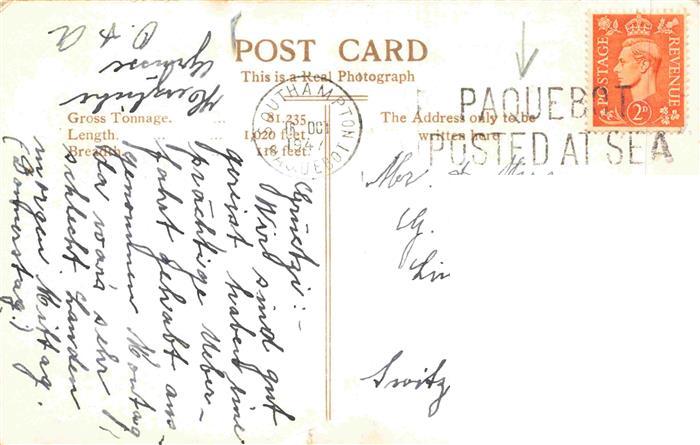 POST CARD
This is a Real Photograph
Gross Tonnage. ... 81,235
Length. ... 1,020 feet.
Breadth. ... 118 feet.
The Address only to be
written here
SOUTHAMPTON
OCT
194
PAQUEBOT
PAQUEBOT
POSTED AT SEA
POSTAGE
REVENUE
2D
Grüetzi!
Wir sind gut
gereist, haben eine
prächtige Ueber-
fahrt gehabt aus-
genommen Montag
da war's sehr
schlecht. Landen
morgen Mittag.
(Donnerstag.)
Herzliche
Grüsse
O. & A
Mr. &
G.
Switz